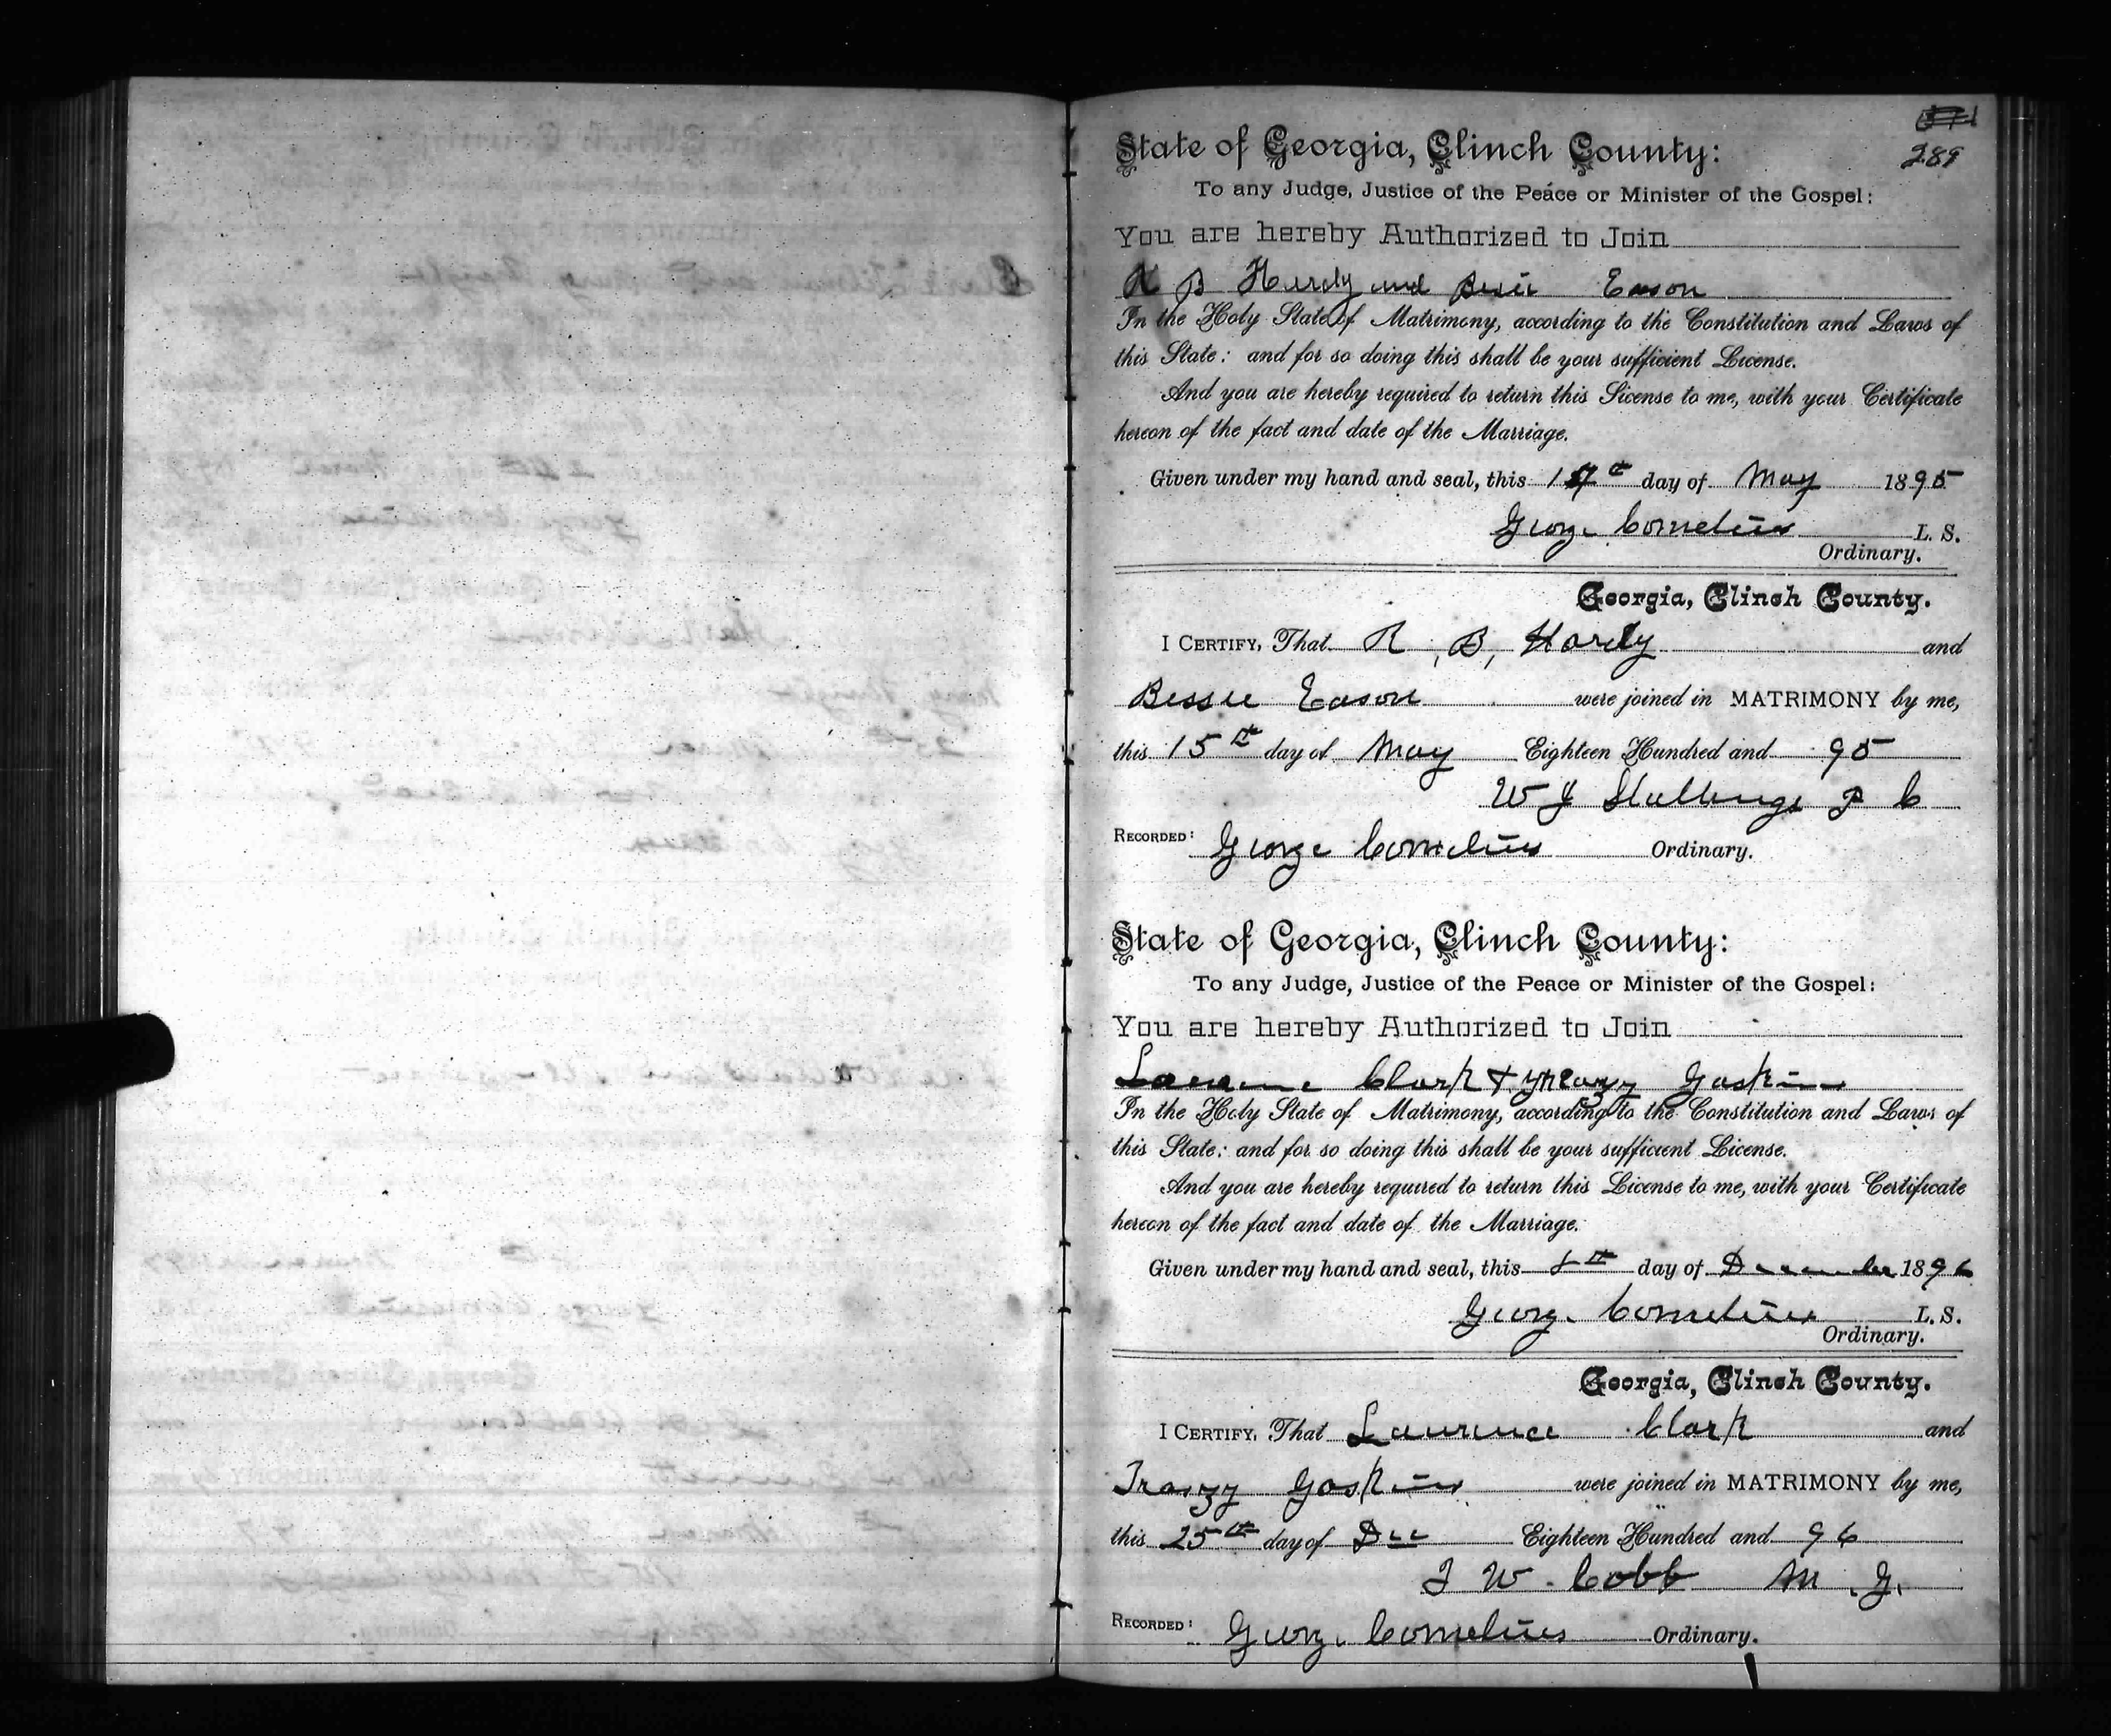 289
State of Georgia, Clinch County:
To any Judge, Justice of the Peace or Minister of the Gospel:
You are hereby Authorized to Join
R B Hardy and Bessie Eason
In the Holy State of Matrimony, according to the Constitution and Laws of
this State: and for so doing this shall be your sufficient License.
And you are hereby required to return this License to me, with your Certificate
hereon of the fact and date of the Marriage.
Given under my hand and seal, this day of May 1895
George Cornelius L. S.
Ordinary.
Georgia, Clinch County.
I CERTIFY, That R, B, Hardy and
Bessie Eason were joined in MATRIMONY by me,
this 15th day of May Eighteen Hundred and 95
W J Stallings J P
RECORDED: George Cornelius Ordinary.
State of Georgia, Clinch County:
To any Judge, Justice of the Peace or Minister of the Gospel:
You are hereby Authorized to Join
Laurence Clark & Gaskins
In the Holy State of Matrimony, according to the Constitution and Laws of
this State: and for so doing this shall be your sufficient License.
And you are hereby required to return this License to me, with your Certificate
hereon of the fact and date of the Marriage.
Given under my hand and seal, this day of December 1896
George Cornelius L. S.
Ordinary.
Georgia, Clinch County.
I CERTIFY, That Laurence Clark and
Gaskins were joined in MATRIMONY by me,
this 25th day of Dec Eighteen Hundred and 96
J W. Cobb M. G.
RECORDED: George Cornelius Ordinary.